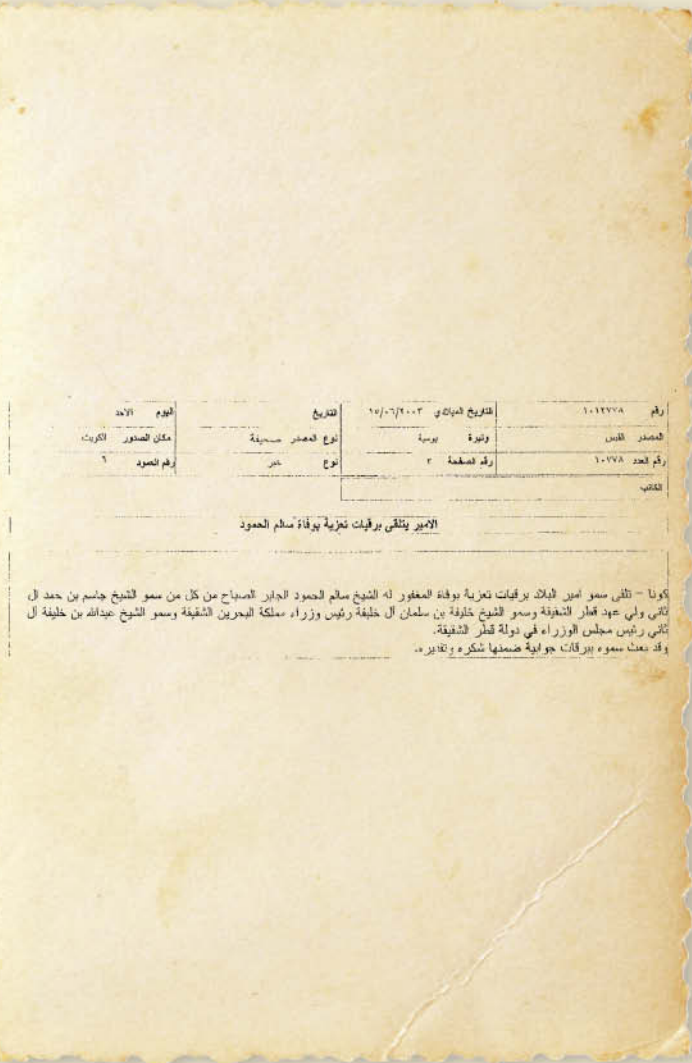 رقم ١٠١٢٧٧٨ التاريخ الميلادي ١٥/٠٦/٢٠٠٣ التاريخ اليوم الاحد
المصدر القبس وتيرة يومية نوع المصدر صحيفة مكان الصدور الكويت
رقم العدد ١٠٧٧٨ رقم الصفحة ٢ نوع خبر رقم الصود ٦
الكاتب
الامير يتلقى برقيات تعزية بوفاة سالم الحمود
كونا – تلقى سمو امير البلاد برقيات تعزية بوفاة المغفور له الشيخ سالم الحمود الجابر الصباح من كل من سمو الشيخ جاسم بن حمد ال
ثاني ولي عهد قطر الشقيقة وسمو الشيخ خليفة بن سلمان آل خليفة رئيس وزراء مملكة البحرين الشقيقة وسمو الشيخ عبدالله بن خليفة آل
ثاني رئيس مجلس الوزراء في دولة قطر الشقيقة.
وقد بعث سموه ببرقات جوابية ضمنها شكره وتقديره.